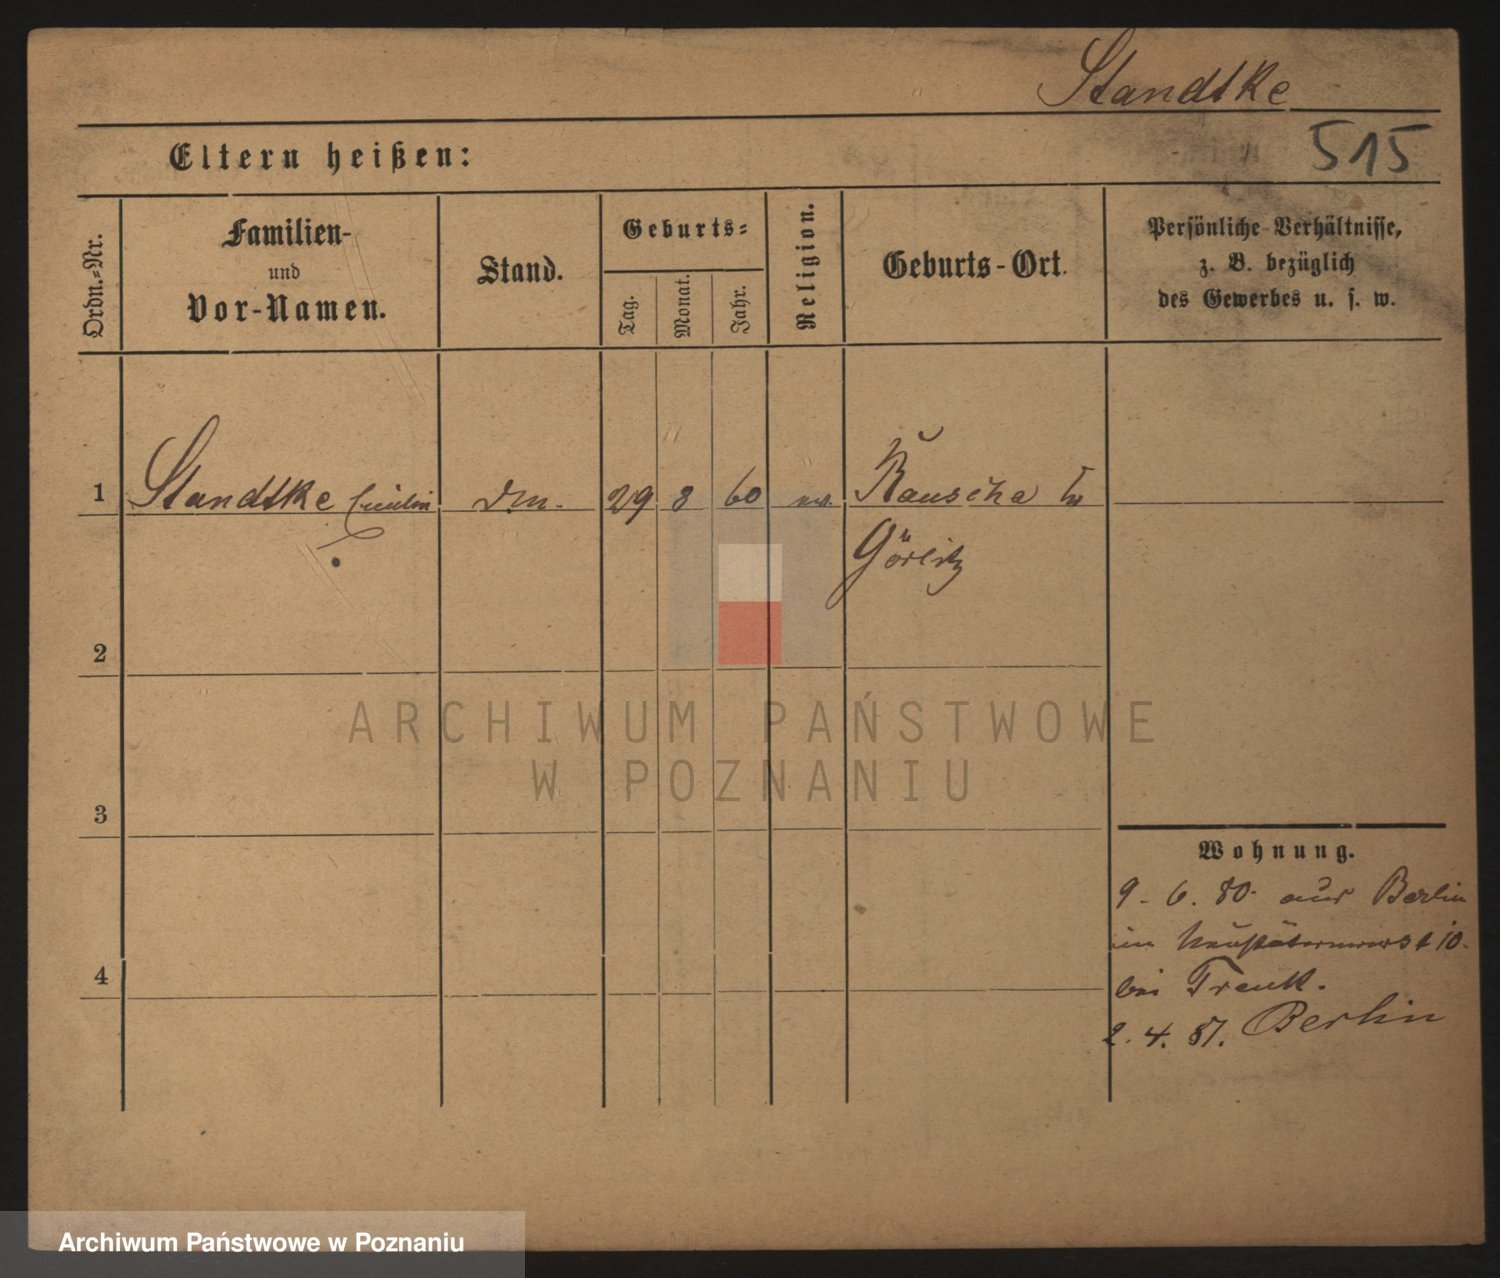 Standtke
515
Eltern heißen:
Ordn.-Nr.
Familien-
und
Vor-Namen.
Stand.
Geburts-
Tag.
Monat.
Jahr.
Religion.
Geburts-Ort.
Persönliche Verhältnisse,
z. B. bezüglich
des Gewerbes u. s. w.
1 Standtke 29 8 60 Rauscha
Görlitz
2
3
4
Wohnung.
9. 6. 80. aus Berlin
bei Frank.
2. 4. 81. Berlin
ARCHIWUM PAŃSTWOWE
W POZNANIU
Archiwum Państwowe w Poznaniu